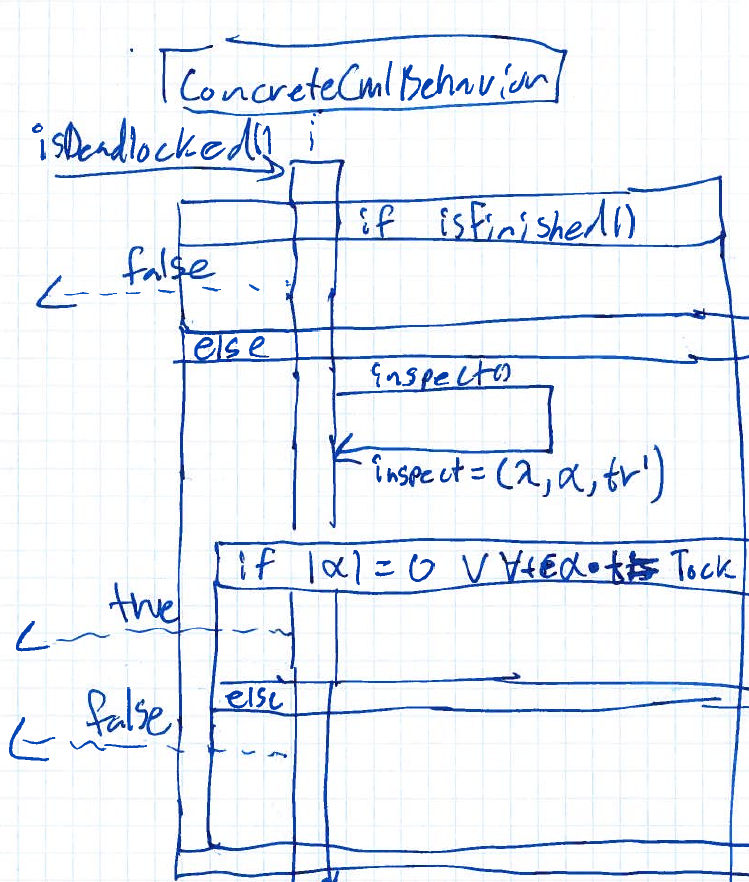 ConcreteCmlBehavior
isDeadlocked() i
if isFinished()
false
else
inspect()
inspect = (λ, α, tr')
if |α| = 0 ∨ ∀t∈α • t Tock
true
else
false